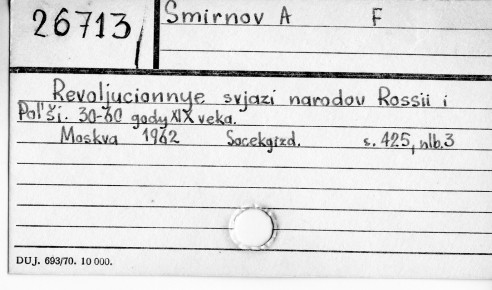 26713/
Smirnov A F
Revoljucionnye svjazi narodov Rossii i
Pol'ši. 30-60 gody XIX veka.
Moskva 1962 Socekgizd. s. 425, nlb.3
DUJ. 693/70. 10 000.